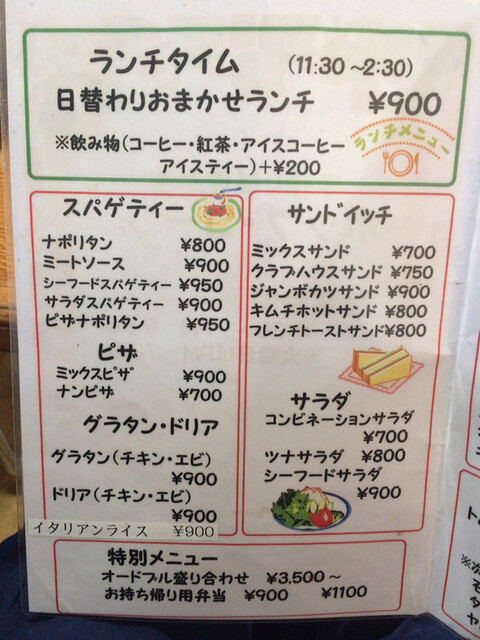 ランチタイム (11:30~2:30)
日替わりおまかせランチ ¥900
※飲み物(コーヒー・紅茶・アイスコーヒー
アイスティー)+¥200
ランチメニュー
スパゲティー
ナポリタン ¥800
ミートソース ¥900
シーフードスパゲティー ¥950
サラダスパゲティー ¥900
ピザナポリタン ¥950
ピザ
ミックスピザ ¥900
ナンピザ ¥700
グラタン・ドリア
グラタン(チキン・エビ)
¥900
ドリア(チキン・エビ)
¥900
イタリアンライス ¥900
サンドイッチ
ミックスサンド ¥700
クラブハウスサンド ¥750
ジャンボカツサンド ¥900
キムチホットサンド ¥800
フレンチトーストサンド¥800
サラダ
コンビネーションサラダ
¥700
ツナサラダ ¥800
シーフードサラダ
¥900
特別メニュー
オードブル盛り合わせ ¥3,500~
お持ち帰り用弁当 ¥900 ¥1100